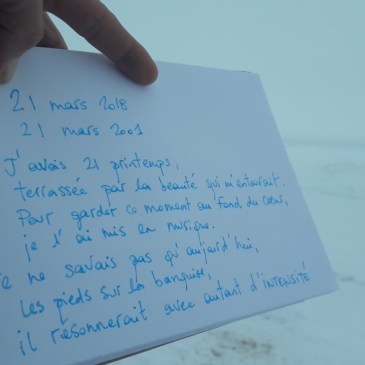 21 mars 2018
21 mars 2001
J'avais 21 printemps,
terrassée par la beauté qui m'entourait.
Pour garder ce moment au fond du cœur,
je l'ai mis en musique.
Je ne savais pas qu'aujourd'hui,
les pieds sur la banquise,
il résonnerait avec autant d'intensité